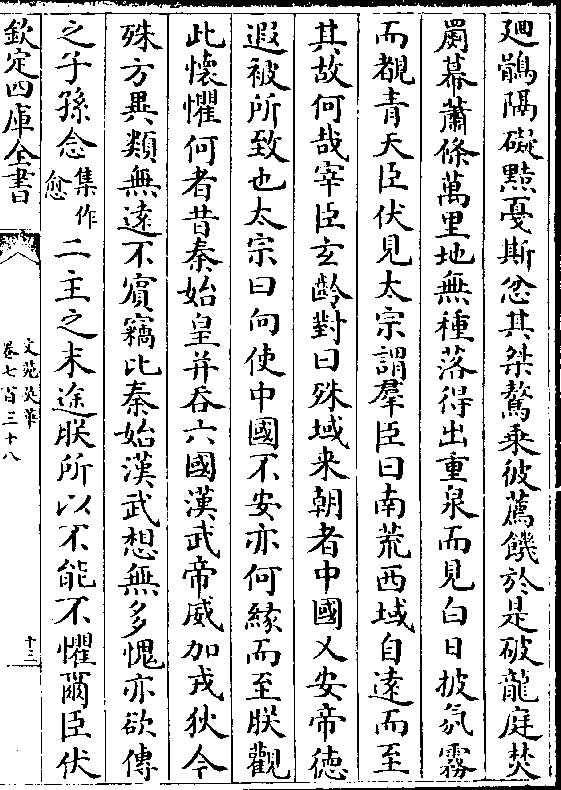 廻鶻隔礙黠戛斯忿其桀驁乗彼薦饑於是破龍庭焚
罽幕蕭條萬里地無種落得出重泉而見白日披氛霧
而覩青天臣伏見太宗謂羣臣曰南荒西域自遠而至
其故何哉宰臣玄齡對曰殊域来朝者中國乂安帝徳
遐被所致也太宗曰向使中國不安亦何緣而至朕觀
此懷懼何者昔秦始皇并吞六國漢武帝威加戎狄今
殊方異類無逺不賔竊比秦始漢武想無多愧亦欲傳
之子孫念集作愈二主之末途朕所以不能不懼爾臣伏
欽定四庫全書
文苑英華
卷七百三十八
十三